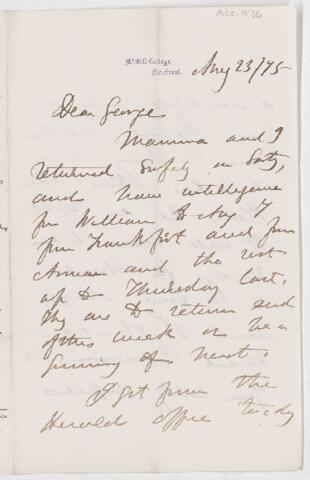 Acc. 976
McGill College,
Montreal.
Aug 23/75
Dear George
Mamma and I
returned safely on Saty,
and have intelligence
fm William to Aug 7
from Frankfort and from
Anna and the rest
up to Thursday last.
They are to return end
of this week or be
ginning of next.
I got from the
Herald office to day